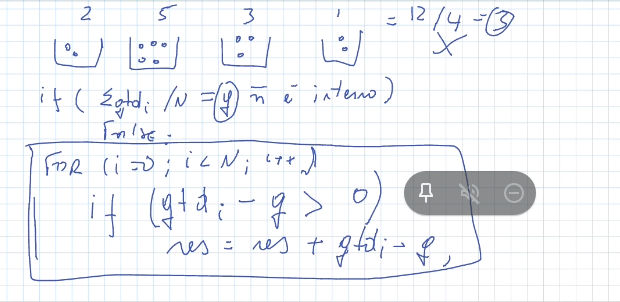 2 5 3 1 = 12 /4 = 3
if ( Σqtd i /N = y ñ é inteiro)
False.
FOR (i=0; i<N; i++)
if (qtd i - q > 0)
res = res + qtd i - q,